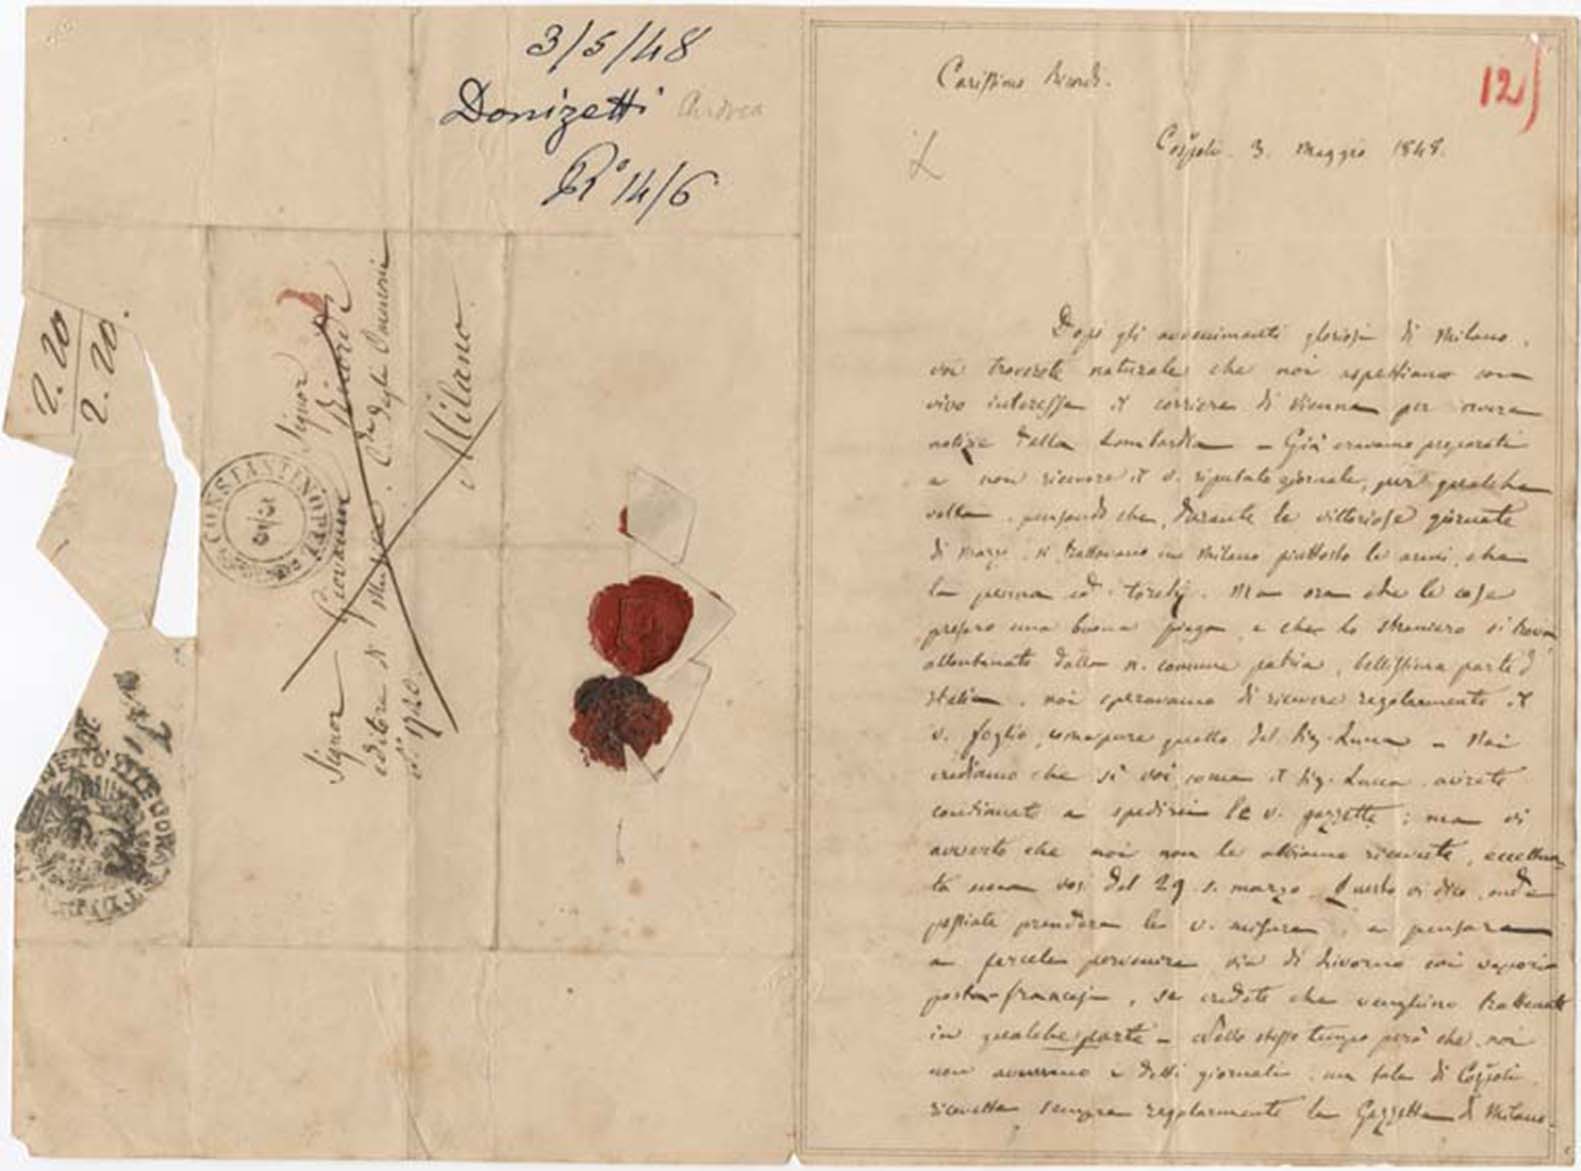 3/5/48
Donizetti Andrea
R° 14/6
2.20
2.20.
CONSTANTINOPEL
Signor
Signor Giovanni Ricordi
editore di Musica. C.da degli Omenoni
N.° 1720.
Milano
12)
Carissimo Ricordi.
Cospoli. 3. Maggio 1848.
Dopo gli avvenimenti gloriosi di Milano,
voi troverete naturale che noi aspettiamo con
vivo interesse il corriere di Vienna per avere
notizie della Lombardia – Già eravamo preparati
a non ricevere il v. riputato giornale, per qualche
volta, pensando che, durante le vittoriose giornate
di marzo, si trattavano in Milano piuttosto le armi, che
la penna ed i torchj. Ma ora che le cose
presero una buona piega, e che lo straniero si trova
allontanato dalla n. comune patria, bellissima parte d'
Italia, noi speravamo di ricevere regolarmente il
v. foglio, come pure quello del Sig. Lucca – Noi
crediamo che sì voi, come il Sig. Lucca, avrete
continuato a spedirci le v. gazzette; ma vi
avverto che noi non le abbiamo ricevute, eccettua-
ta una vos. del 29 s. marzo. Questo vi dico, onde
possiate prendere le v. misure, e pensare
a farcele pervenire via di Livorno coi vapori
posta-francesi, se credete che venghino trattenute
in qualche parte – Nello stesso tempo però che noi
non avevamo i detti giornali, un tale di Cospoli
riceveva sempre regolarmente la Gazzetta di Milano.